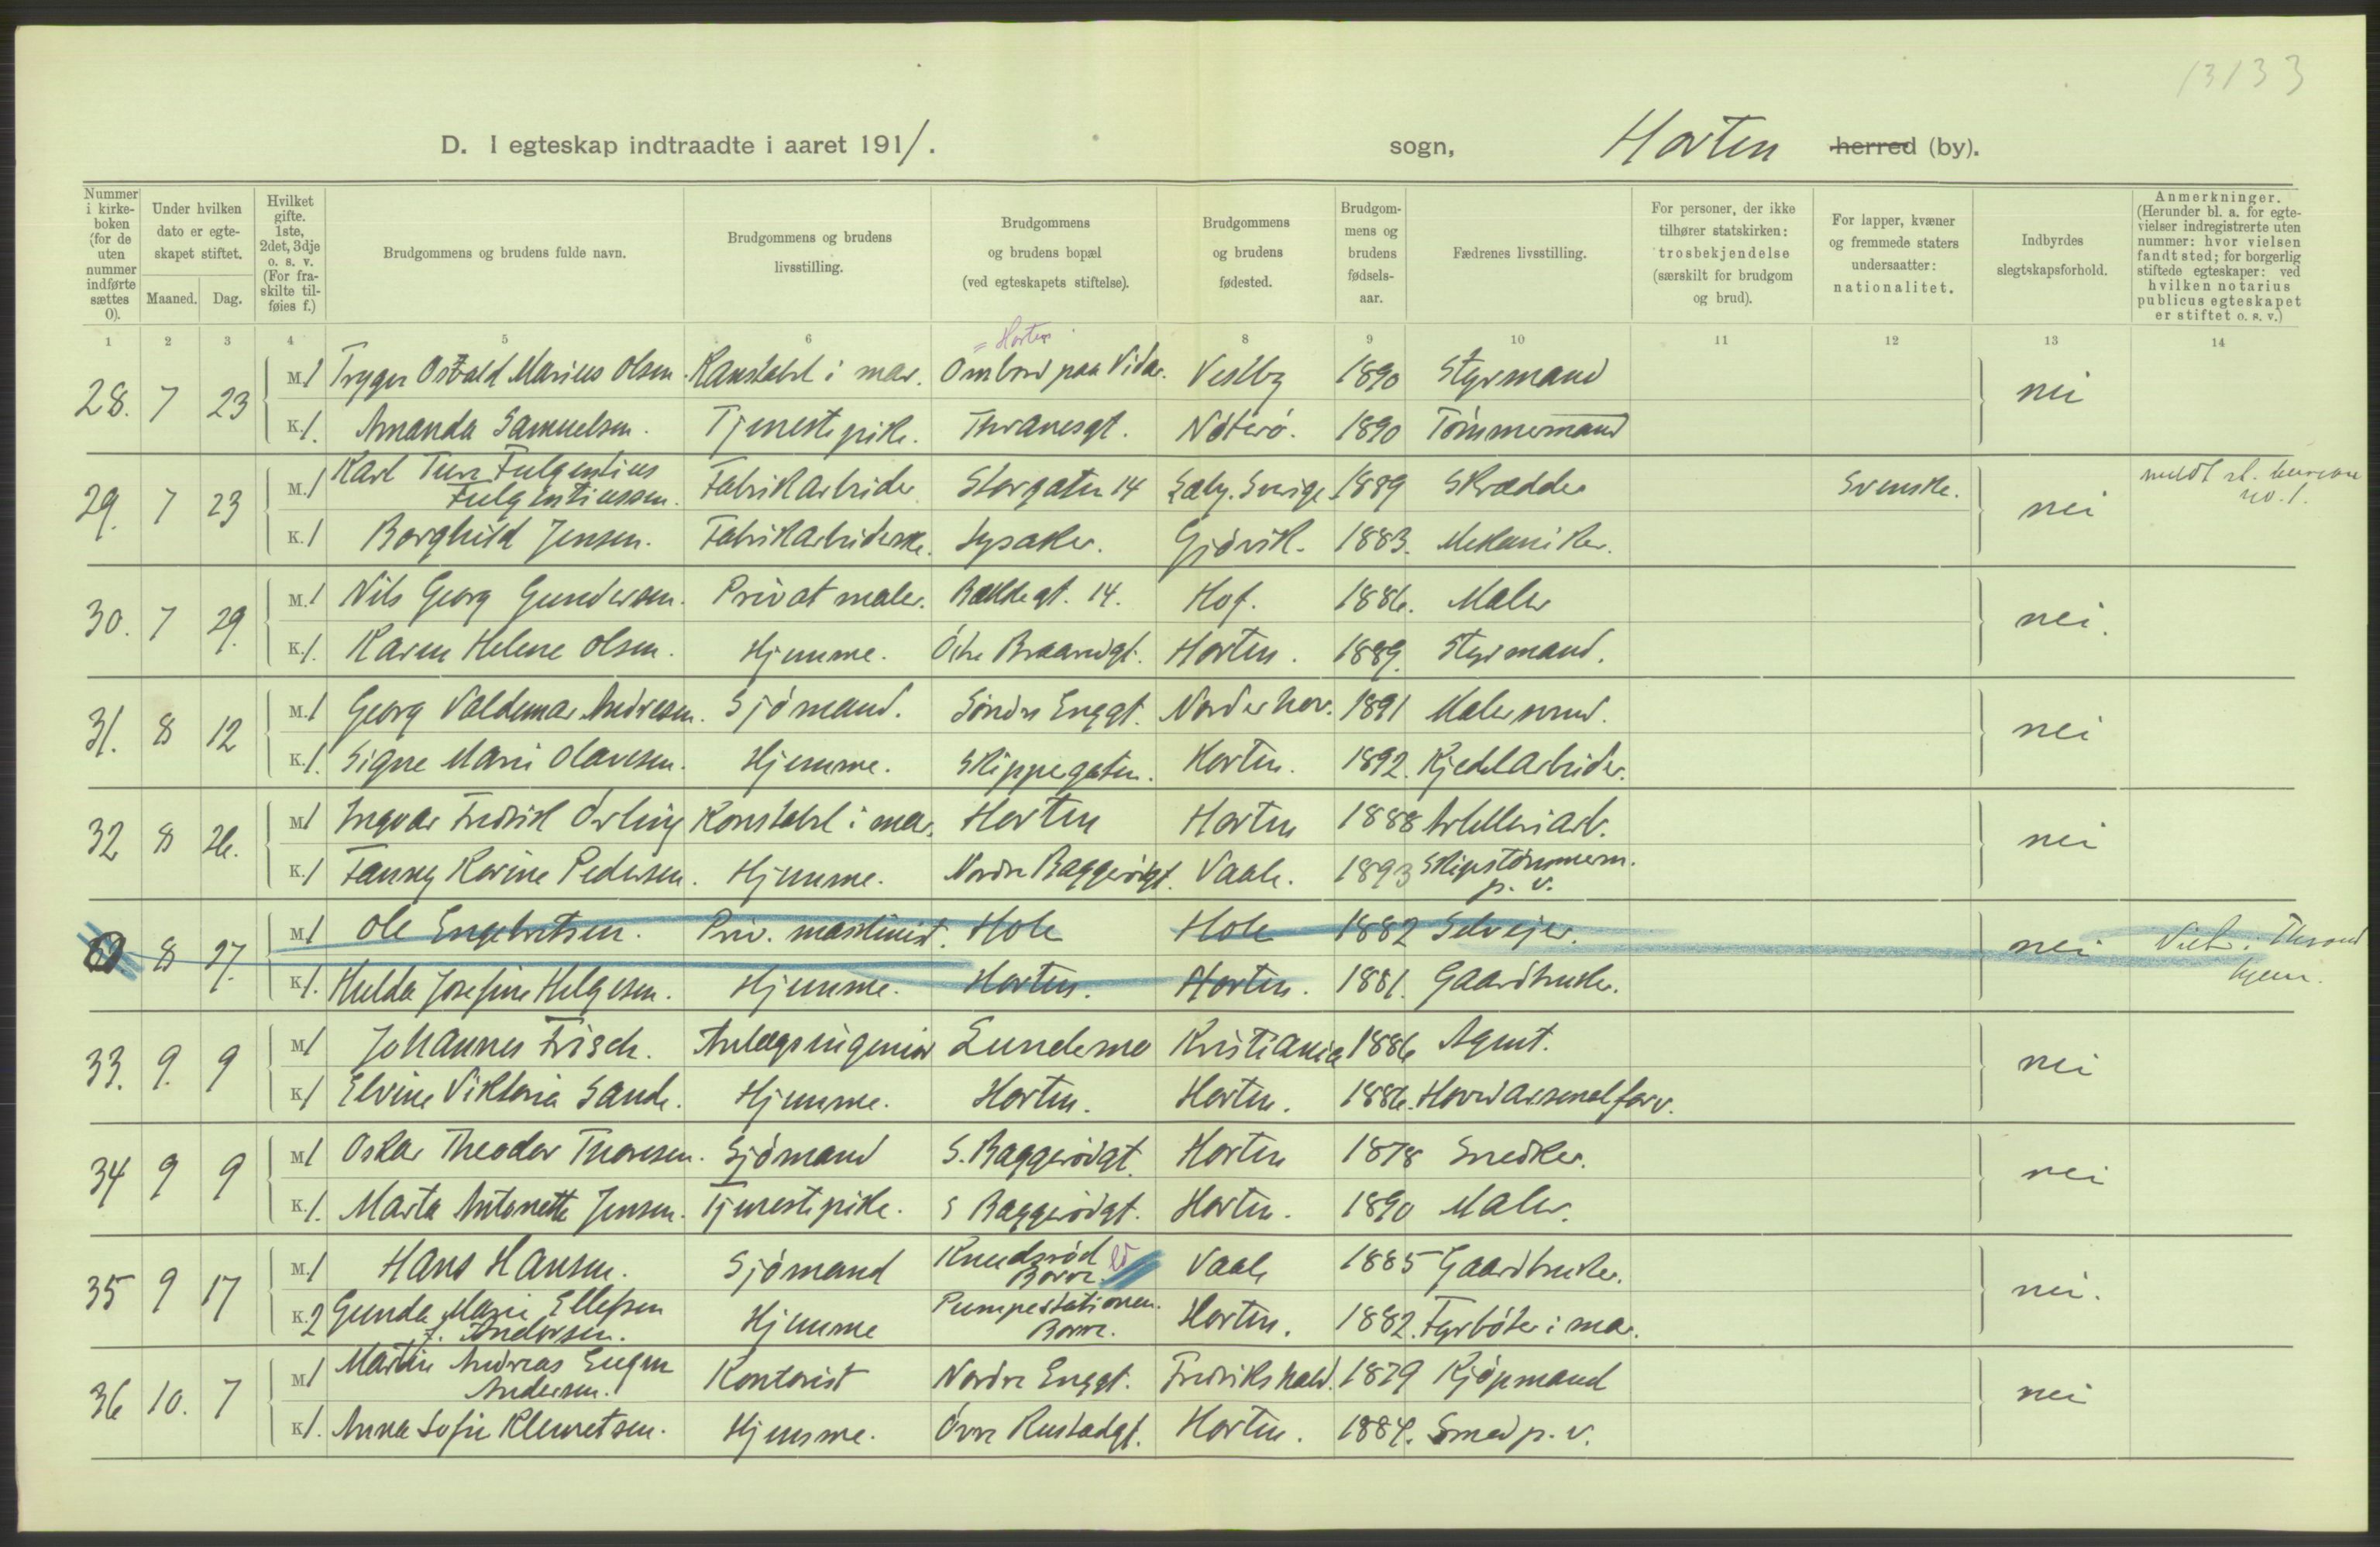 13133
D. I egteskap indtraadte i aaret 1911. sogn, Horten herred (by).
Nummer i kirke-boken (for de uten nummer indførte sættes 0).
Under hvilken dato er egte-skapet stiftet.
Maaned. Dag.
Hvilket gifte. 1ste, 2det, 3dje o. s. v. (For fra-skilte til-føies f.)
Brudgommens og brudens fulde navn.
Brudgommens og brudens livsstilling.
Brudgommens og brudens bopæl (ved egteskapets stiftelse).
Brudgommens og brudens fødested.
Brudgom-mens og brudens fødsels-aar.
Fædrenes livsstilling.
For personer, der ikke tilhører statskirken: trosbekjendelse (særskilt for brudgom og brud).
For lapper, kvæner og fremmede staters undersaatter: nationalitet.
Indbyrdes slegtskapsforhold.
Anmerkninger. (Herunder bl. a. for egte-vielser indregistrerte uten nummer: hvor vielsen fandt sted; for borgerlig stiftede egteskaper: ved hvilken notarius publicus egteskapet er stiftet o. s. v.)
1 2 3 4 5 6 8 9 10 11 12 13 14
= Horten
28. 7 23 M. 1 Trygve Osvald Marius Olsen. Konstabel i mar. Ombord paa Vidar. Vestby 1890 Styrmand nei
K. 1. Amanda Samuelsen. Tjenestepike. Thranesgt. Nøterø. 1890 Tømmermand
29. 7 23 M. 1 Karl Ture Fulgentius Fulgentiussen. Fabrikarbeider Storgaten 14 Sæby. Sverige 1889 Skrædder Svensk. nei meldt st. bureau no. 1.
K. 1 Borghild Jensen. Fabrikarbeiderske. Lysaker. Gjøvik. 1883. Mekaniker.
30. 7 29. M. 1 Nils Georg Gundersen. Privat maler. Bakkegt. 14. Hof. 1886. Maler nei.
K. 1. Karen Helene Olsen. Hjemme. Østre Braarudgt. Horten. 1889. Styrmand.
31. 8 12 M. 1 Georg Valdemar Andresen. Sjømand. Søndre Enggt. Norderhov. 1891 Malersvend. nei
K. 1. Signe Marie Olavesen. Hjemme. Skippergaten. Horten. 1892. Kjedelarbeider.
32 8 26. M. 1 Ingvar Fredrik Ørling Konstabel i mar. Horten Horten 1888 Artilleriarb. nei
K. 1 Fanny Karine Pedersen. Hjemme. Nordre Baggerødgt. Vaale. 1893 Skipstømmerm. p. v.
0. 8 27. M. 1 Ole Engebretsen. Priv. maskinist. Hole Hole 1882 Selveier. nei Viet i Throndhjem.
K. 1. Hulda Josefine Helgesen. Hjemme. Horten. Horten. 1881. Gaardbruker.
33. 9. 9 M. 1 Johannes Frisch. Anlægsingeniør Lundemo Kristiania 1886 Agent. nei
K. 1 Elvine Viktoria Sande. Hjemme. Horten. Horten. 1886. Hovedarsenalforv.
34 9 9 M. 1 Oskar Theodor Thoresen. Sjømand S. Baggerødgt. Horten 1878 Snedker. nei
K. 1. Marta Antonette Jensen. Tjenestepike. S Baggerødgt. Horten. 1890 Maler.
35 9 17 M. 1 Hans Hansen. Sjømand Knudsrød Borre. Vaale 1885 Gaardbruker. nei.
K. 2 Gunda Marie Ellefsen f. Andersen. Hjemme Pumpestationen. Borre. Horten. 1882. Fyrbøter i mar.
36 10. 7 M. 1 Martin Andreas Eugen Andersen. Kontorist Nordre Enggt. Fredrikshald. 1879 Kjøpmand nei
K. 1. Anna Sofie Klemetsen. Hjemme. Øvre Rustadgt. Horten. 1884. Smed p. v.